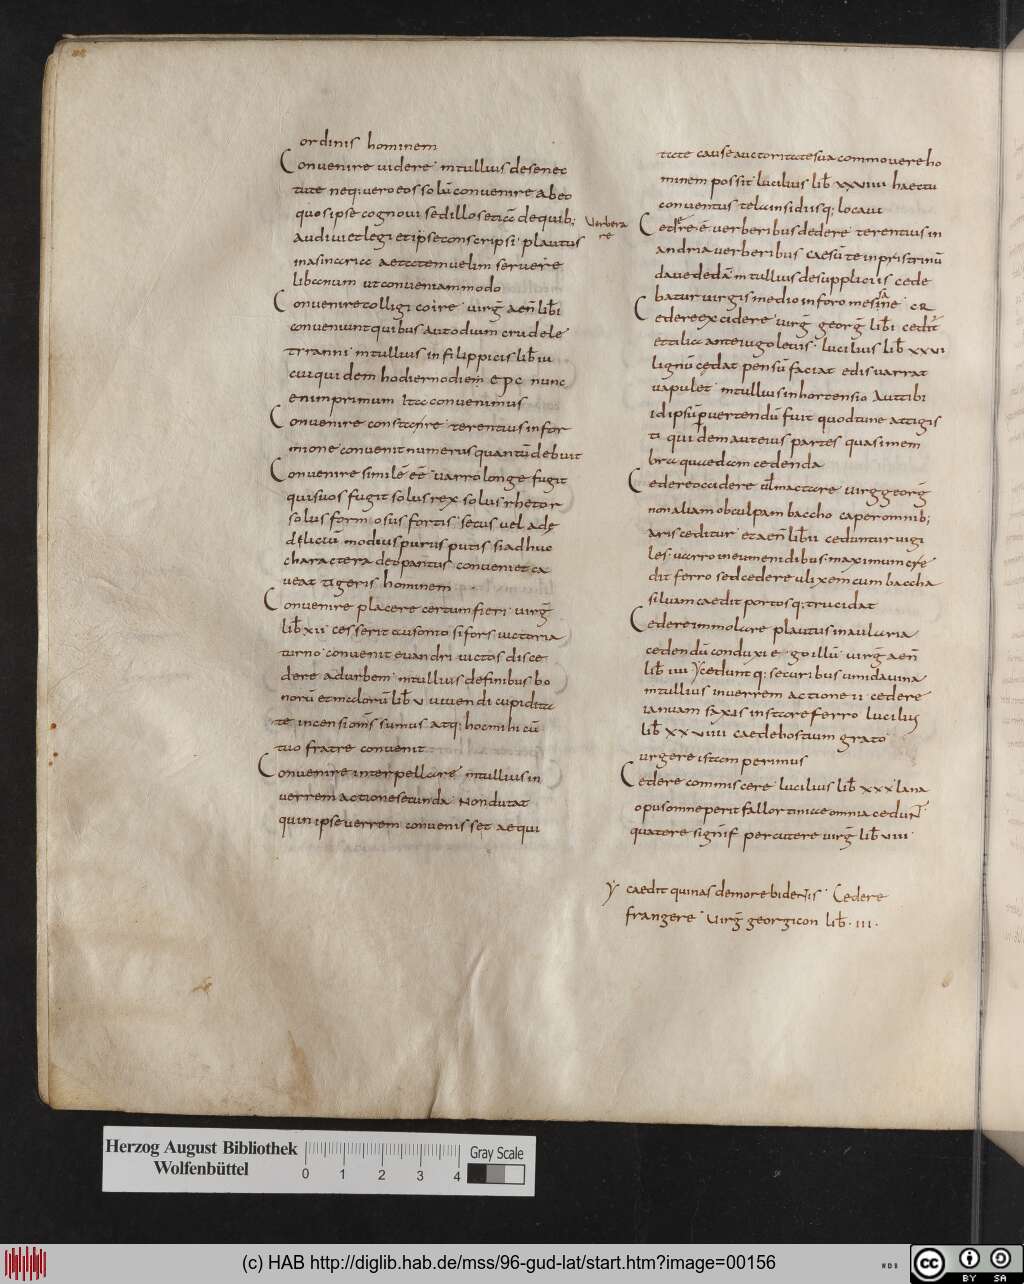 ordinis hominem
Convenire uidere mtullius desenec
tute neq; uero eos solū convenire abeo
quos ipse cognoui sedillos etiā dequib;
audiui et legi et ipse conscripsi plautus
inasinaria aetatem uelim seruire
libanum ut conveniam modo
Convenire colligi coire uirḡ aen̄ lib̄ i
conveniunt quibus aut odium crudele
tyranni mtullius infilippicis lib̄ iu
cui quidem hodierno diem epc nunc
enim primum ita convenimus
Convenire constare terentius infor
mione convenit numerus quantū debuit
Convenire similē eē uarro longe fugit
qui suos fugit solus rex solus rhetor
solus formosus fortis secus uel ade
deliciū modius purus putis si adhuc
charactera deopantus conveniet ca
ueat tigeris hominem
Convenire placere certum fieri uirḡ
lib̄ xii cesserit ausonio si fors uictoria
turno convenit euandri uictos disce
dere adurbem mtullius definibus bo
norū et malorū lib̄ u uiuendi cupidita
te incensi om̄s sumus atq; hoc mihi cū
tuo fratre convenit
Convenire interpellare mtullius in
uerrem actione secunda Non dutat
quin ipse uerrem convenisset aequi
Verbera
re
tate causae auctoritate sua commouere ho
minem possit lucilius lib̄ xxuiiii haec tu
conventus tela insidiisq; locaui
Cedere ē uerberibus dedere terentius in
andria uerberibus caesū te in pristrinū
daue dedā mtullius de suppliciis cede
batur uirgis medio in foro mesinae
Cedere excidere uirḡ georḡ lib̄ i cedit̄
et tilia ante iugo leuis lucilius lib̄ xxui
lignū cedat pensū faciat edis uarrat
uapulet mtullius in hortensio Aut tibi
id ipsū peruertendū fuit quod tune attigis
ti qui dem aut eius partes quasi mem
bra quaedam cedenda
Cedere occidere ūl mactare uirg georḡ
non aliam ob culpam baccho caper omnib;
aris ceditur et aen̄ lib̄ ii ceduntur uigi
les uarro in eumenidibus maximum cre
dit ferro sed cedere ulixem cum baccha
siluam caedit portosq; trucidat
Cedere immolare plautus in aularia
cedendū conduxi ego illū uirḡ aen̄
lib̄ iiii cedunt q; securibus umida uina
mtullius in uerrem actione ii cedere
ianuam saxis instare ferro lucilius
lib̄ xxuiiii caede bostium grato
urgere istam perimus
Cedere commiscere lucilius lib̄ xxx lana
opus omne perit fallor tiniae omnia cedunt̄
quatere signif percutere uirḡ lib̄ uiii
caedit quinas de more bident̄is Cedere
frangere Uirḡ georgicon lib̄ · iii ·
Herzog August Bibliothek
Wolfenbüttel
0 1 2 3 4
Gray Scale
(c) HAB http://diglib.hab.de/mss/96-gud-lat/start.htm?image=00156
WDB
cc BY SA